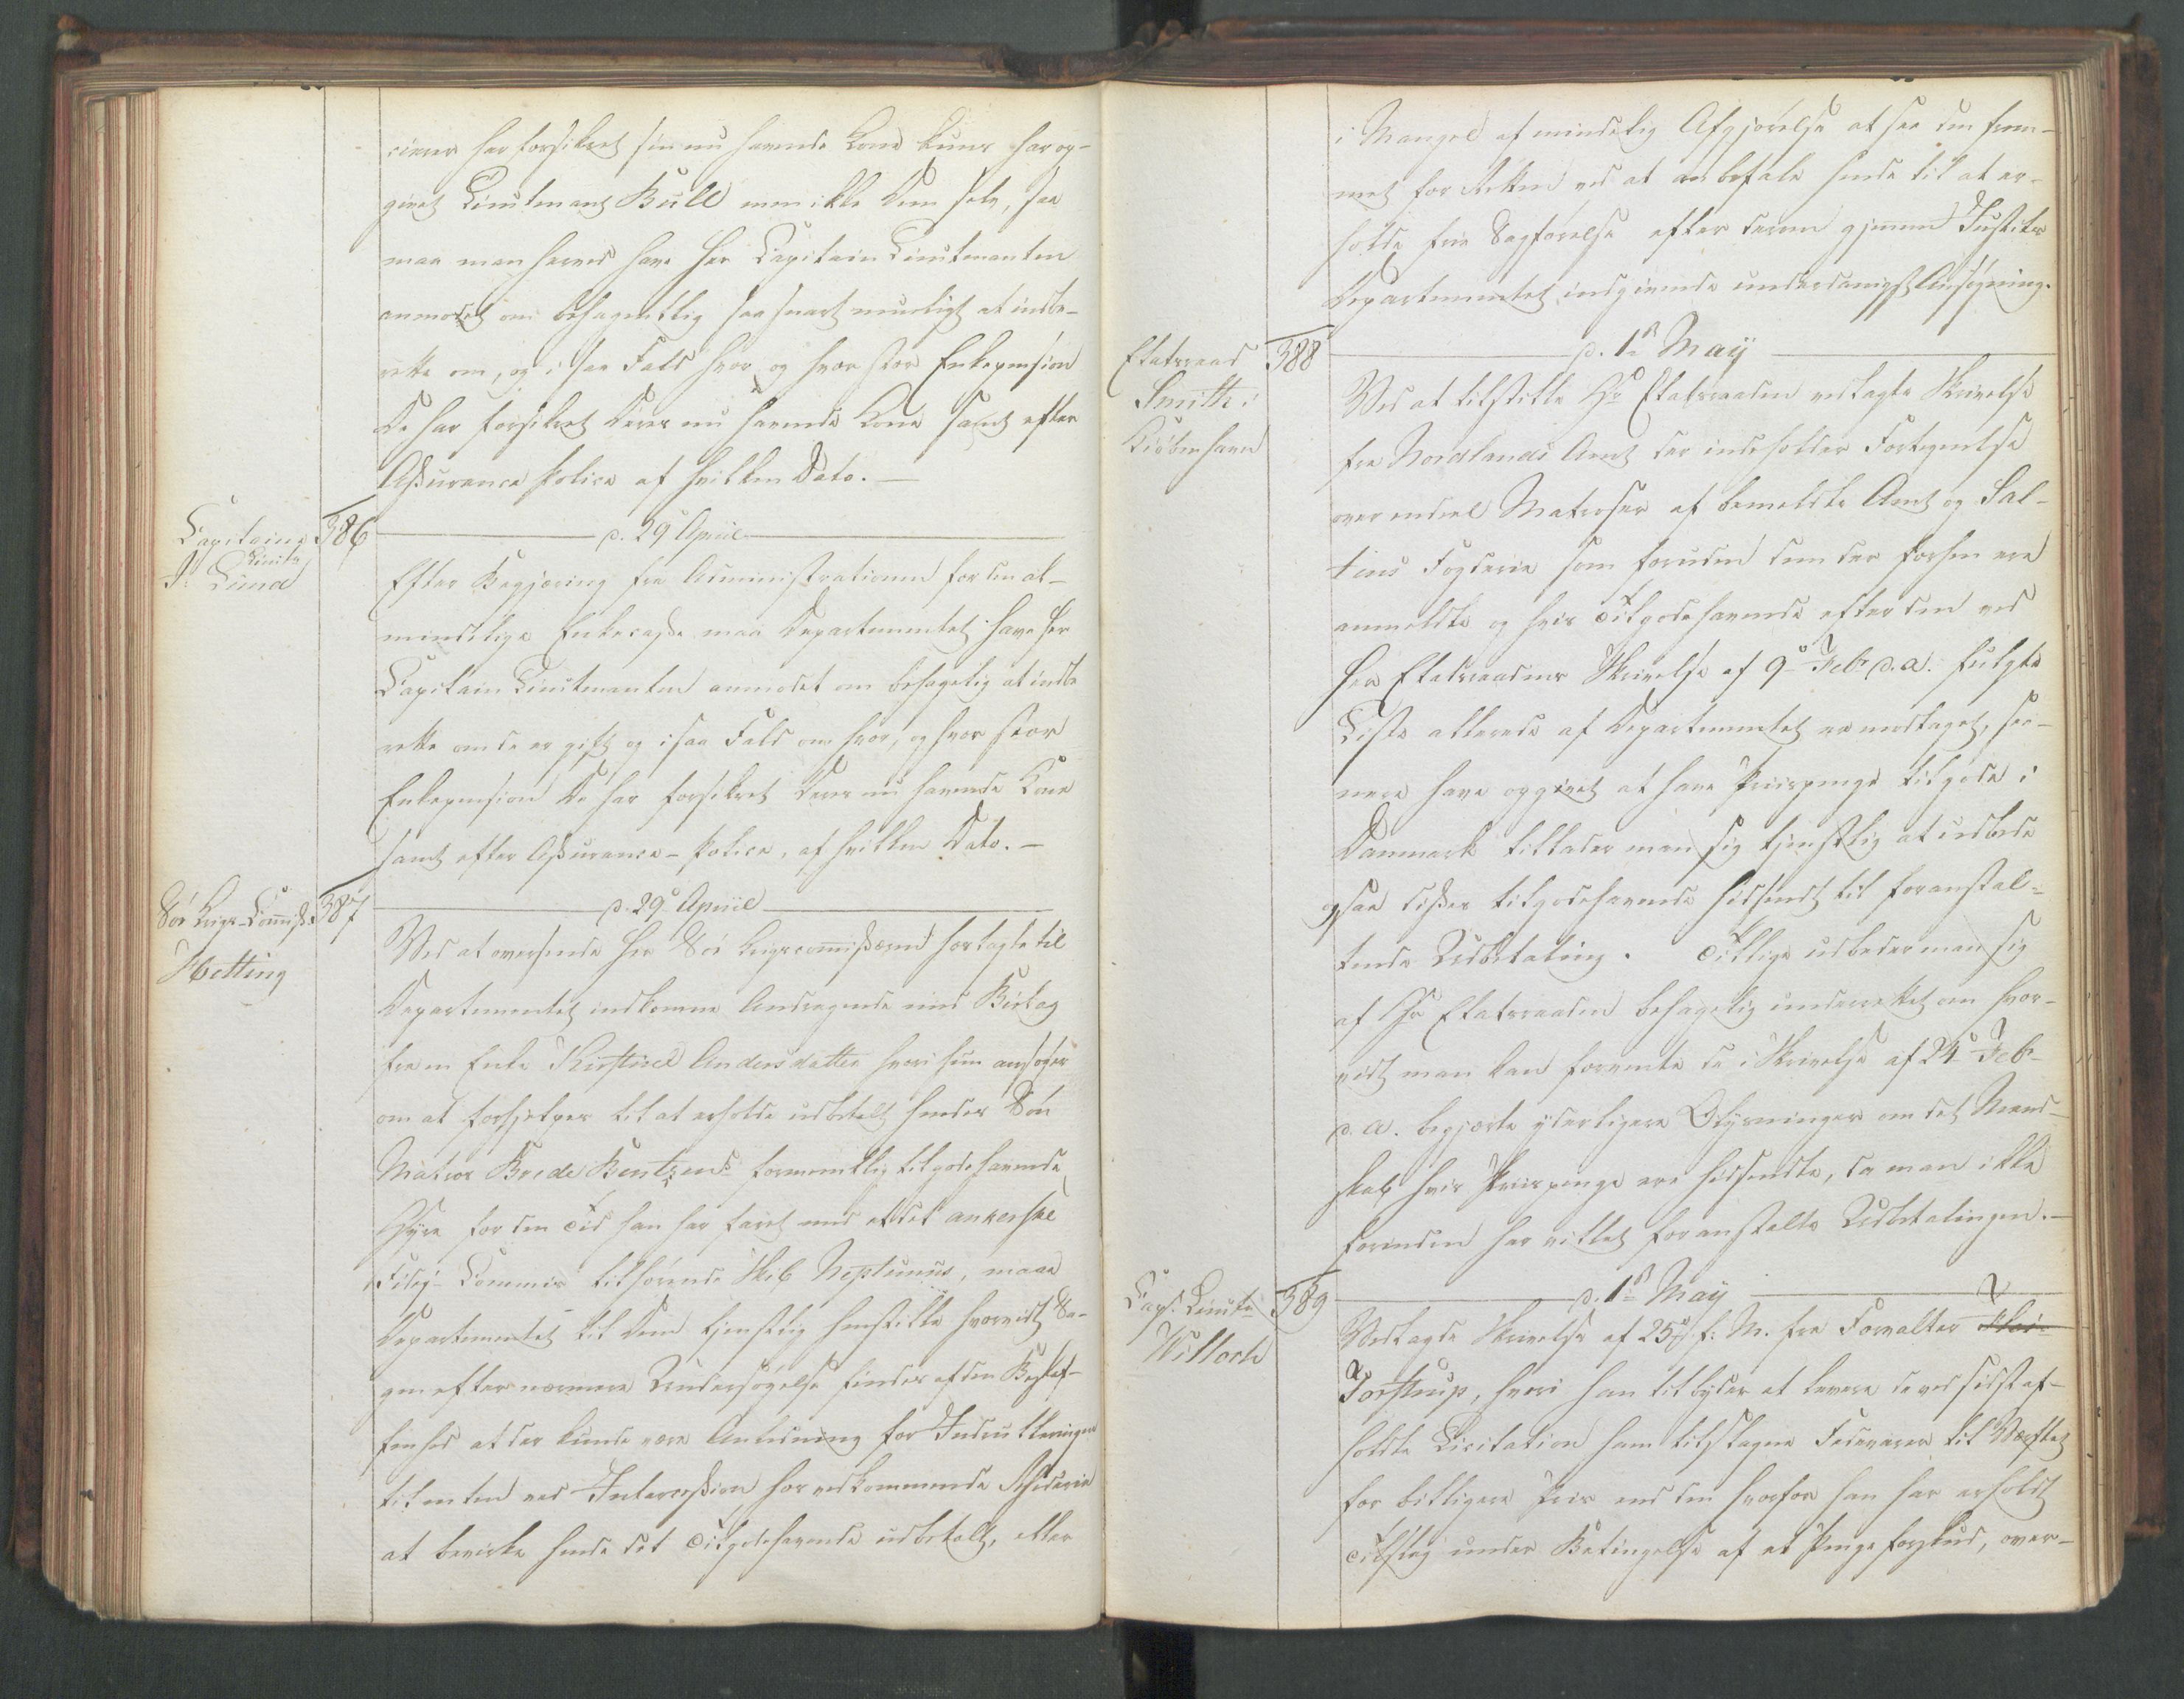 cierer har forsikret sin nu havende Kone kuns har op-
givet Lieutenant Bull men ikke Dem selv, saa
maa man herved have Her Capitain Lieutenanten
anmodet om behageligig saa snart mueligt at indbe-
rette om, og i saa Fald hvor og hvor stor Enkepension
De har forsikret Deres nu havende Kone samt efter
Assurance Police af hvilken Dato. —
Capitaine
Lieuts
Lund
386
d. 29 April
Efter Begjæring fra Administrationen for den al-
mindelige Enkecasse maa Departementet have Her
Capitain Lieutenanten anmodet om behagelig at indbe
rette om de er gift og i saa Fald om hvor, og hvor stor
Enkepension De har forsikret Deres nu havende Kone
samt efter Assurance-Police, af hvilken Dato. —
Sør Krigs-Commiss.
Hetting
387
d. 29 April
Ved at oversende Her Søe Krigscommissæren hoslagte til
Departementet indkomne Andragende med Bielag
fra en Enke Kirstine Andersdatter hvori hun ansøger
om at forhjelpes til at erholde udbetalt hendes Søn
Matros Brede Bentzens formeentlig tilgodehavende
Hyre for den Tid han har faret med et det ankerske
Fidej-Commis tilhørende Skib Neptunus, maa
Departementet til Dem tjenstlig henstille hvorvidt Sa-
gen efter nærmere Undersøgelse findes af den Beskaf-
fenhed at der kunde være Anledning for Indrulleringen
til enten ved Intercession hos vedkommende Rhederie
at bevirke hende det Tilgodehavende udbetalt, eller
i Mangel af mindelig Afgjørelse at see den frem-
met for Retten ved at anbefale hende til at er-
holde frie Sagførelse efter derom gjennem Justits
Departementet indgivende underdanigst Ansøgning.
Etatsraad
Smith i
Kiøbenhavn
388
d. 1ste May
Ved at tilstille Hr Etatsraaden vedlagte Skrivelse
fra Nordlands Amt der indeholder Fortegnelse
over endeel Matroser af bemeldte Amt og Sal-
tens Fogderie som foruden dem der forhen ere
anmeldte og hvis Tilgodehavende efter den ved
Her Etatsraadens Skrivelse af 9de Febr d. a. fulgte
Liste allerede af Departementet er modtaget, see-
nere have opgivet at have Priispenge tilgode i
Danmark tillader man sig tjenstlig at udbede
ogsaa disses tilgodehavende hidsendt til foranstal-
tende Udbetaling. Tillige udbeder man sig
af Hr Etatsraaden behagelig underrettet om hvor-
vidt man kan forvente de i Skrivelse af 24de Febr
d. a. begjærte yderligere Oplysninger om det Mand-
skab hvis Priispenge ere hidsendte, da man ikke
forinden har villet foranstalte Udbetalingen. —
Capt. Lieut
Willoch
389
d. 1ste May
Vedlagde Skrivelse af 25de f: M. fra Forvalter
Torstrup, hvori han tilbyder at levere de ved sidst af-
holdte Licitation ham tilslagne Fedevarer til Værftet
for billigere Priis end den hvorfor han har erholdt
Tilslag under Betingelse af et Penge forskud, over-